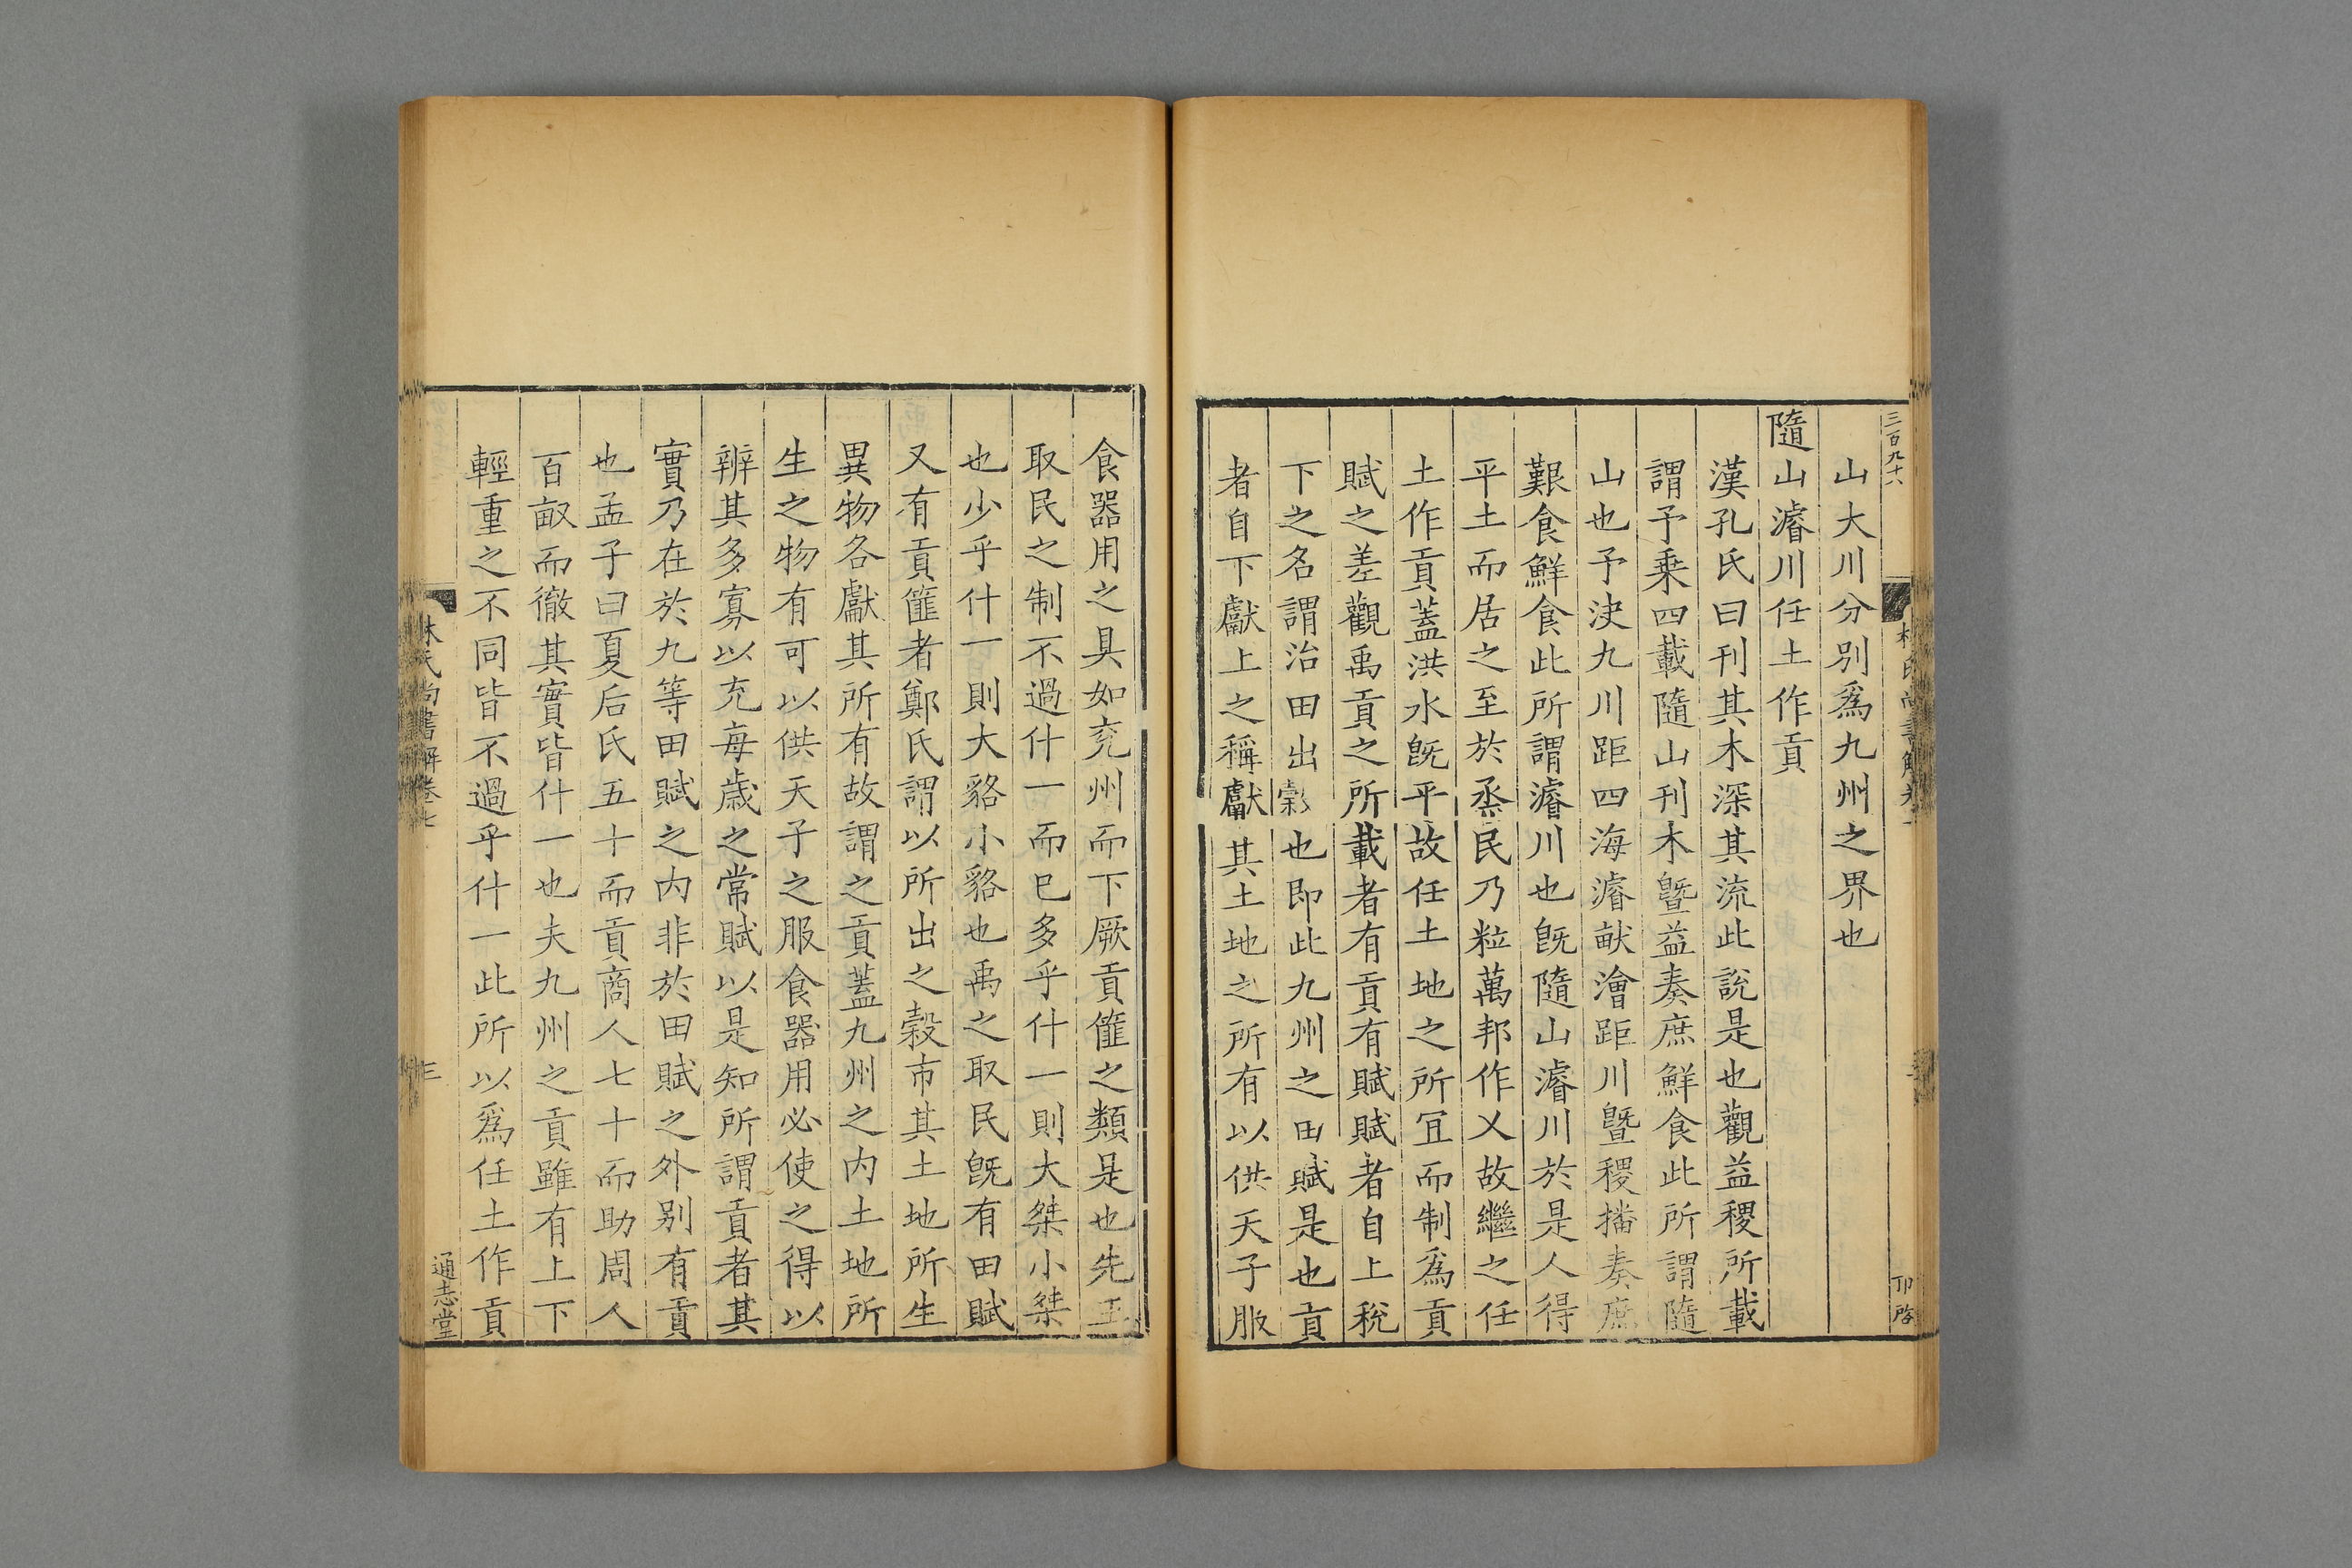 三百九十六
林氏尚書解卷
卭啓
山大川分別爲九州之界也
隨山濬川任土作貢
漢孔氏曰刊其木深其流此說是也觀益稷所載
謂予乗四載隨山刊木曁益奏庶鮮食此所謂隨
山也予決九川距四海濬畎澮距川曁稷播奏庶
艱食鮮食此所謂濬川也旣隨山濬川於是人得
平土而居之至於烝民乃粒萬邦作乂故繼之任
土作貢蓋洪水旣平故任土地之所宜而制爲貢
賦之差觀禹貢之所載者有貢有賦賦者自上稅
下之名謂治田出穀也即此九州之田賦是也貢
者自下獻上之稱獻其土地之所有以供天子服
食器用之具如兖州而下厥貢篚之類是也先王
取民之制不過什一而巳多乎什一則大桀小桀
也少乎什一則大貉小貉也禹之取民旣有田賦
又有貢篚者鄭氏謂以所出之穀市其土地所生
異物各獻其所有故謂之貢蓋九州之内土地所
生之物有可以供天子之服食器用必使之得以
辨其多寡以充每歲之常賦以是知所謂貢者其
實乃在於九等田賦之内非於田賦之外别有貢
也孟子曰夏后氏五十而貢商人七十而助周人
百畝而徹其實皆什一也夫九州之貢雖有上下
輕重之不同皆不過乎什一此所以爲任土作貢
林氏尚書解卷七
三
通志堂